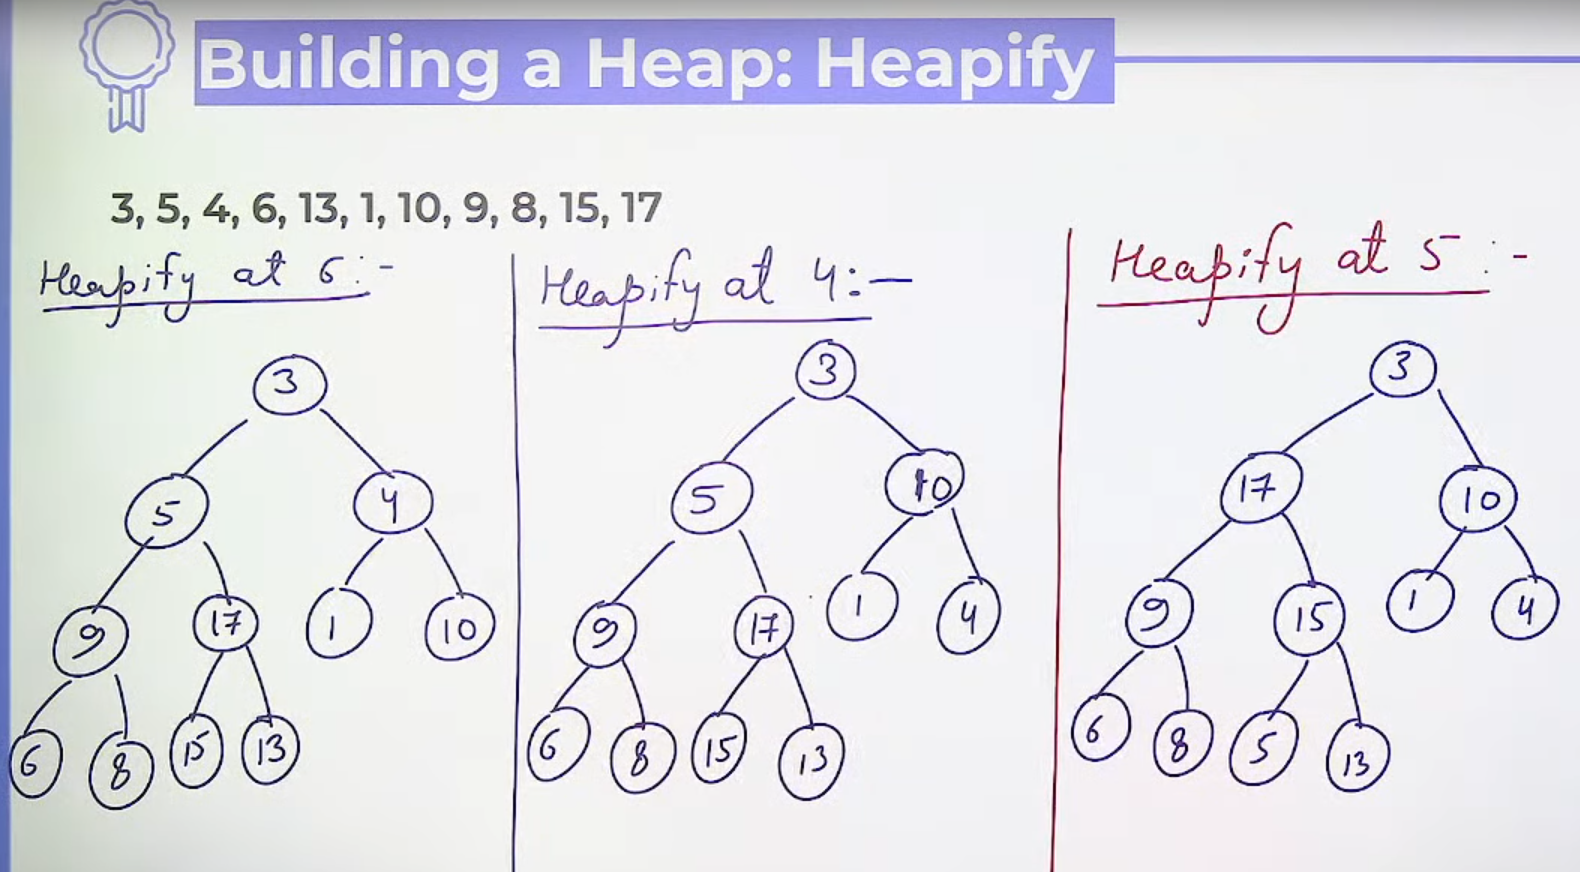 Building a Heap: Heapify
3, 5, 4, 6, 13, 1, 10, 9, 8, 15, 17
Heapify at 6:-
3
5 4
9 17 1 10
6 8 15 13
Heapify at 4:-
3
5 10
9 17 1 4
6 8 15 13
Heapify at 5:-
3
17 10
9 15 1 4
6 8 5 13